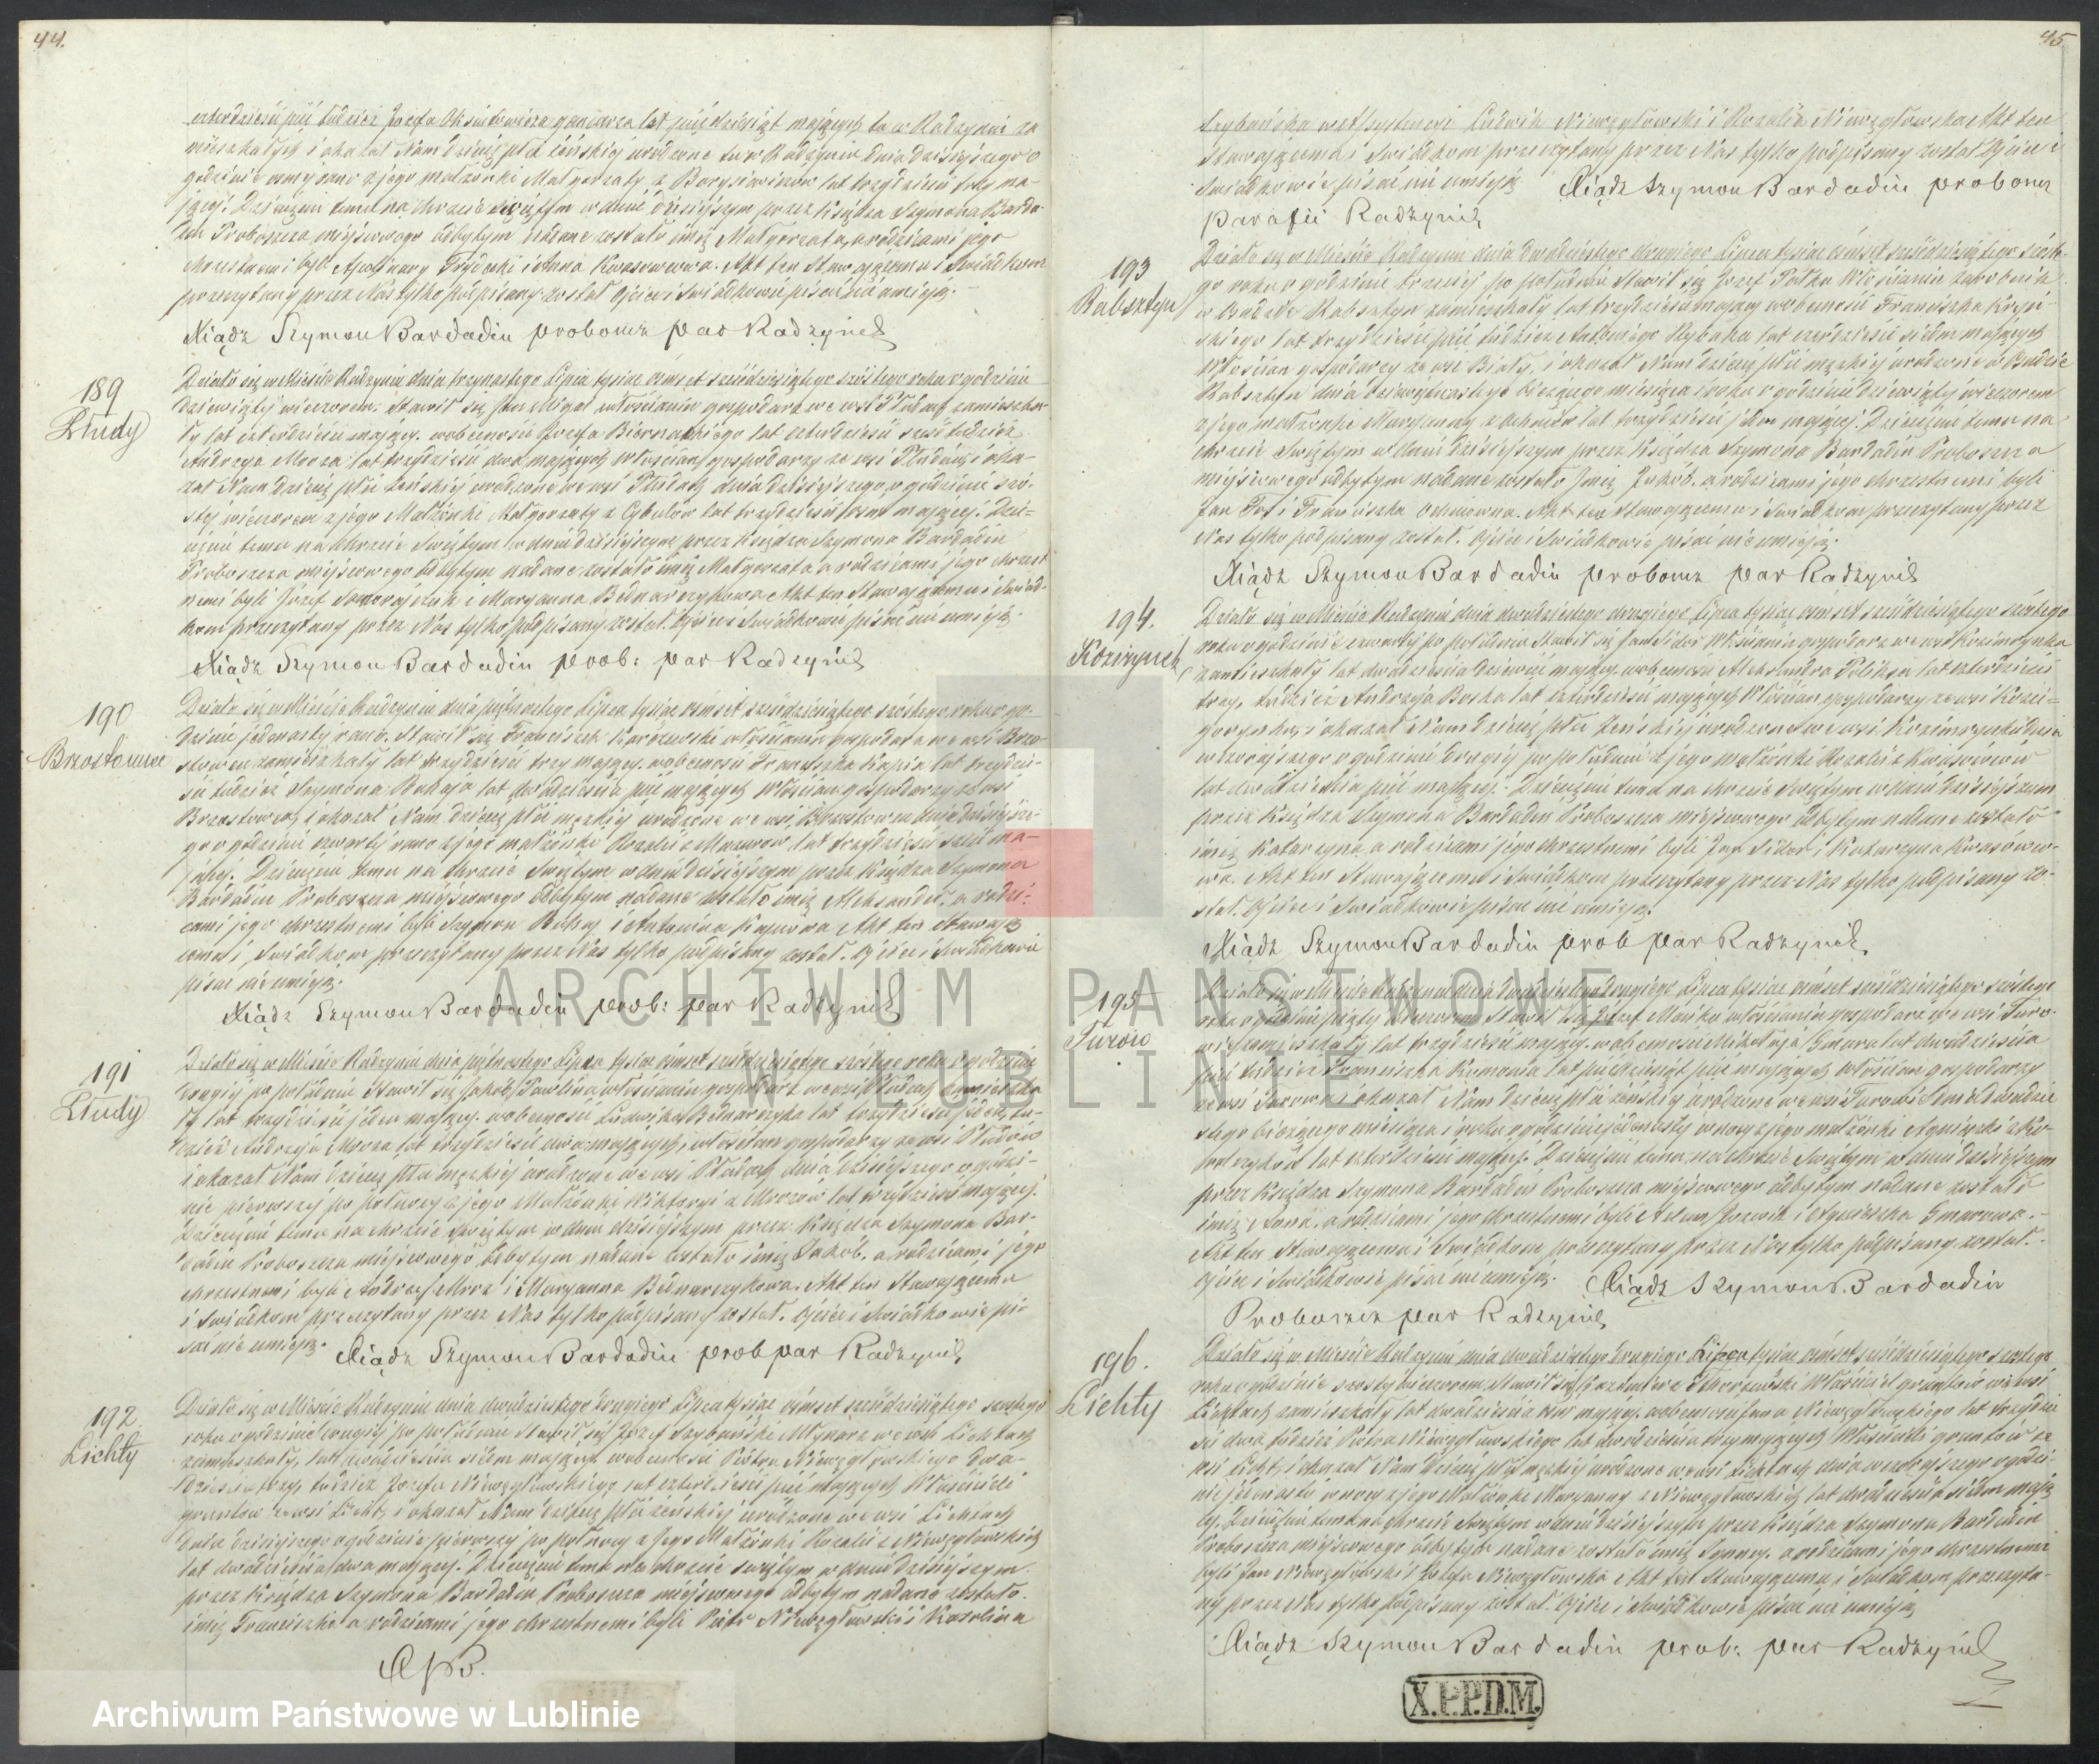 44.
czterdzieści pięć tudzież Józefa garncarza lat pięćdziesiąt mających tu w Radzyniu za
mieszkałych i okazał Nam dziecię płci żeńskiej urodzone tu w Radzyniu dnia dzisiejszego o
godzinie rano z jego małżonki Małgorzaty z lat trzydzieści trzy ma-
jącej. Dziecięciu temu na Chrzcie Świętym w dniu dzisiejszym przez Księdza Szymona Barda-
din Proboszcza miejscowego odbytym nadane zostało imię Małgorzata, a rodzicami jego
chrzestnemi byli Apolinary Frydecki i Anna Kwasowcowa. Akt ten Stawającemu i Świadkom
przeczytany przez Nas tylko podpisany został Ojciec i Świadkowie pisać nie umieją.
Xiądz Szymon Bardadin proboszcz par Radzynia
189
Płudy
Działo się w Mieście Radzyniu dnia trzynastego Lipca tysiąc ośmset sześdziesiątego szóstego roku o godzinie
dziewiątej wieczorem. Stawił się Jan Migal włościanin gospodarz we wsi Płudach zamieszka-
ły lat czterdzieści mający, w obecności Józefa Biernackiego lat czterdzieści sześć tudzież
Andrzeja Mroza lat trzydzieści dwa mających Włościan gospodarzy ze wsi Płudów, i oka-
zał Nam dziecię płci żeńskiej urodzone we wsi Płudach dnia dzisiejszego, o godzinie szó-
stej wieczorem z jego Małżonki Małgorzaty z Cybulów lat trzydzieści mającej. Dzie-
cięciu temu na Chrzcie Świętym w dniu dzisiejszym przez Księdza Szymona Bardadin
Proboszcza miejscowego odbytym nadane zostało imię Małgorzata a rodzicami jego chrzest
nemi byli Józef i Maryanna Bednarczykowa. Akt ten Stawającemu i Świad-
kom przeczytany przez Nas tylko podpisany został. Ojciec i Świadkowie pisać nie umieją.
Xiądz Szymon Bardadin prob: par Radzynia
190
Brzostowiec
Działo się w Mieście Radzyniu dnia piętnastego Lipca tysiąc ośmset sześdziesiątego szóstego roku o go-
dzinie jedenastej rano. Stawił się Franciszek Karczewski włościanin gospodarz we wsi Brzo-
stowcu zamieszkały lat trzydzieści trzy mający, w obecności Franciszka Kapicia lat trzydzie-
ści tudzież Szymona lat dwadzieścia pięć mających Włościan gospodarzy ze wsi
Brzostowca, i okazał Nam dziecię płci męzkiej urodzone we wsi Brzostowcu dnia dzisiejsze-
go o godzinie czwartej rano z jego małżonki Rozalii z Mazurów lat trzydzieści sześć ma-
jącej. Dziecięciu temu na Chrzcie Świętym w dniu dzisiejszym przez Księdza Szymona
Bardadin Proboszcza miejscowego odbytym nadane zostało imię Aleksander, a rodzi-
cami jego chrzestnemi byli Szymon i Antonina Akt ten Stawają
cemu i Świadkom przeczytany przez Nas tylko podpisany został. Ojciec i Świadkowie
pisać nie umieją.
Xiądz Szymon Bardadin prob: par Radzynia
191
Płudy
Działo się w Mieście Radzyniu dnia piętnastego Lipca tysiąc ośmset sześdziesiątego szóstego roku o godzinie
drugiej po południu Stawił się Jakób Pawlina włościanin gospodarz we wsi Płudach zamieszka
ły lat trzydzieści jeden mający, w obecności Ludwika Bednarczyka lat trzydzieści tu-
dzież Andrzeja Mroza lat trzydzieści dwa mających, włościan gospodarzy ze wsi Płudów
i okazał Nam dziecię płci męzkiej urodzone we wsi Płudach dnia dzisiejszego o godzi-
nie pierwszej po północy z jego Małżonki Wiktoryi z Mrozów lat trzydzieści mającej.
Dziecięciu temu na chrzcie Świętym w dniu dzisiejszym przez Księdza Szymona Bar-
dadin Proboszcza miejscowego odbytym nadane zostało imię Jakób, a rodzicami jego
chrzestnemi byli Andrzej Mroz i Maryanna Bednarczykowa. Akt ten Stawającemu
i Świadkom przeczytany przez Nas tylko podpisany został. Ojciec i Świadkowie pi-
sać nie umieją. Xiądz Szymon Bardadin prob par Radzynia
192.
Lichty
Działo się w Mieście Radzyniu dnia dwudziestego drugiego Lipca tysiąc ośmset sześdziesiątego szóstego
roku o godzinie drugiej po południu Stawił się Józef Szybański Młynarz we wsi Lichtach
zamieszkały, lat dwadzieścia siedem mający, w obecności Piotra Niewęgłowskiego dwa-
dzieścia trzy, tudzież Józefa Niewęgłowskiego lat czterdzieści pięć mających Właścicieli
gruntów ze wsi Licht, i okazał Nam dziecię płci żeńskiej urodzone we wsi Lichtach
dnia dzisiejszego o godzinie pierwszej po północy z jego Małżonki Rozalii z Niewęgłowskich
lat dwadzieścia dwa mającej. Dziecięciu temu na chrzcie świętym w dniu dzisiejszym
przez Księdza Szymona Bardadin Proboszcza miejscowego odbytym nadane zostało
imię Franciszka a rodzicami jego chrzestnemi byli Piotr Niewęgłowski i Karolina
45
Szybańska w Assystencyi Ludwik Niewęgłowski i Rozalia Niewęgłowska Akt ten
Stawającemu i Świadkom przeczytany przez Nas tylko podpisany został Ojciec i
Świadkowie pisać nie umieją. Xiądz Szymon Bardadin proboszcz
parafii Radzynia
193
Rabsztyn
Działo się w Mieście Radzyniu dnia dwudziestego drugiego Lipca tysiąc ośmset sześdziesiątego szóste-
go roku o godzinie trzeciej po południu Stawił się Józef Włościanin zarobnik
w Budzie Rabsztyn zamieszkały lat trzydzieści mający w obecności Franciszka
skiego lat trzydzieści pięć tudzież Antoniego Rybaka lat czterdzieści siedm mających
Włościan gospodarzy ze wsi Biały, i okazał Nam dziecię płci męzkiej urodzone w Budzie
Rabsztyn dnia dziewiętnastego bieżącego miesiąca i roku o godzinie dziewiątej wieczorem
z jego małżonki Maryanny lat trzydzieści jeden mającej. Dziecięciu temu na
chrzcie Świętym w dniu dzisiejszym przez Księdza Szymona Bardadin Proboszcza
miejscowego odbytym nadane zostało Imię Jakób, a rodzicami jego chrzestnemi byli
Jan i Franciszka Akt ten Stawającemu i Świadkom przeczytany przez
Nas tylko podpisany został. Ojciec i Świadkowie pisać nie umieją.
Xiądz Szymon Bardadin proboszcz par Radzynia
194.
Działo się w Mieście Radzyniu dnia dwudziestego drugiego Lipca tysiąc ośmset sześdziesiątego szóstego
roku o godzinie czwartej po południu Stawił się Jan Sidor Włościanin gospodarz we wsi
zamieszkały lat dwadzieścia dziewięć mający, w obecności Aleksandra lat czterdzieści
trzy, tudzież Andrzeja lat czterdzieści mających Włościan gospodarzy ze wsi
i okazał Nam dziecię płci żeńskiej urodzone we wsi dnia
wczorajszego o godzinie drugiej po południu z jego małżonki Rozalii z Kwasowców
lat dwadzieścia pięć mającej. Dziecięciu temu na chrzcie Świętym w dniu dzisiejszym
przez Księdza Szymona Bardadin Proboszcza miejscowego odbytym nadane zostało
imię Katarzyna a rodzicami jego chrzestnemi byli Jan Sidor i Katarzyna
Akt ten Stawającemu i Świadkom przeczytany przez Nas tylko podpisany zo-
stał. Ojciec i Świadkowie pisać nie umieją.
Xiądz Szymon Bardadin prob par Radzynia
195
Turów
Działo się w Mieście Radzyniu dnia dwudziestego drugiego Lipca tysiąc ośmset sześdziesiątego szóstego
roku o godzinie piątej wieczorem Stawił się Józef Mańko włościanin gospodarz we wsi Turo-
wie zamieszkały lat trzydzieści mający, w obecności Mikołaja Gmura lat dwadzieścia
pięć tudzież Franciszka lat pięćdziesiąt pięć mających Włościan gospodarzy
ze wsi Turowa i okazał Nam dziecię płci żeńskiej urodzone we wsi Turowie dnia dwudzie
stego bieżącego miesiąca i roku o godzinie jedenastej w nocy z jego małżonki Agnieszki
lat czterdzieści mającej. Dziecięciu temu na chrzcie Świętym w dniu dzisiejszym
przez Księdza Szymona Bardadin Proboszcza miejscowego odbytym nadane zostało
imię Anna, a rodzicami jego chrzestnemi byli Adam i Agnieszka Gmurowa.
Akt ten Stawającemu i Świadkom przeczytany przez Nas tylko podpisany został.
Ojciec i Świadkowie pisać nie umieją. Xiądz Szymon Bardadin
Proboszcz par Radzynia
196.
Lichty
Działo się w Mieście Radzyniu dnia dwudziestego drugiego Lipca tysiąc ośmset sześdziesiątego szóstego
roku o godzinie szóstej wieczorem. Stawił się Kazimierz Właściciel gruntów we wsi
Lichtach zamieszkały lat dwadzieścia mający, w obecności Jana Niewęgłowskiego lat trzydzie
ści dwa tudzież Piotra Niewęgłowskiego lat dwadzieścia trzy mających Właścicieli gruntów ze
wsi Licht, i okazał Nam dziecię płci męzkiej urodzone we wsi Lichtach dnia wczorajszego o godzi-
nie jedenastej w nocy z jego Małżonki Maryanny z Niewęgłowskich lat dwadzieścia siedm mają
cej. Dziecięciu temu na chrzcie Świętym w dniu dzisiejszym przez Księdza Szymona Bardadin
Proboszcza miejscowego odbytym nadane zostało imię a rodzicami jego chrzestnemi
byli Jan Niewęgłowski i Józefa Niewęgłowska Akt ten Stawającemu i Świadkom przeczyta-
ny przez Nas tylko podpisany został. Ojciec i Świadkowie pisać nie umieją
Xiądz Szymon Bardadin prob: par Radzynia
X.P.P.D.M.
ARCHIWUM PAŃSTWOWE
W LUBLINIE
Archiwum Państwowe w Lublinie